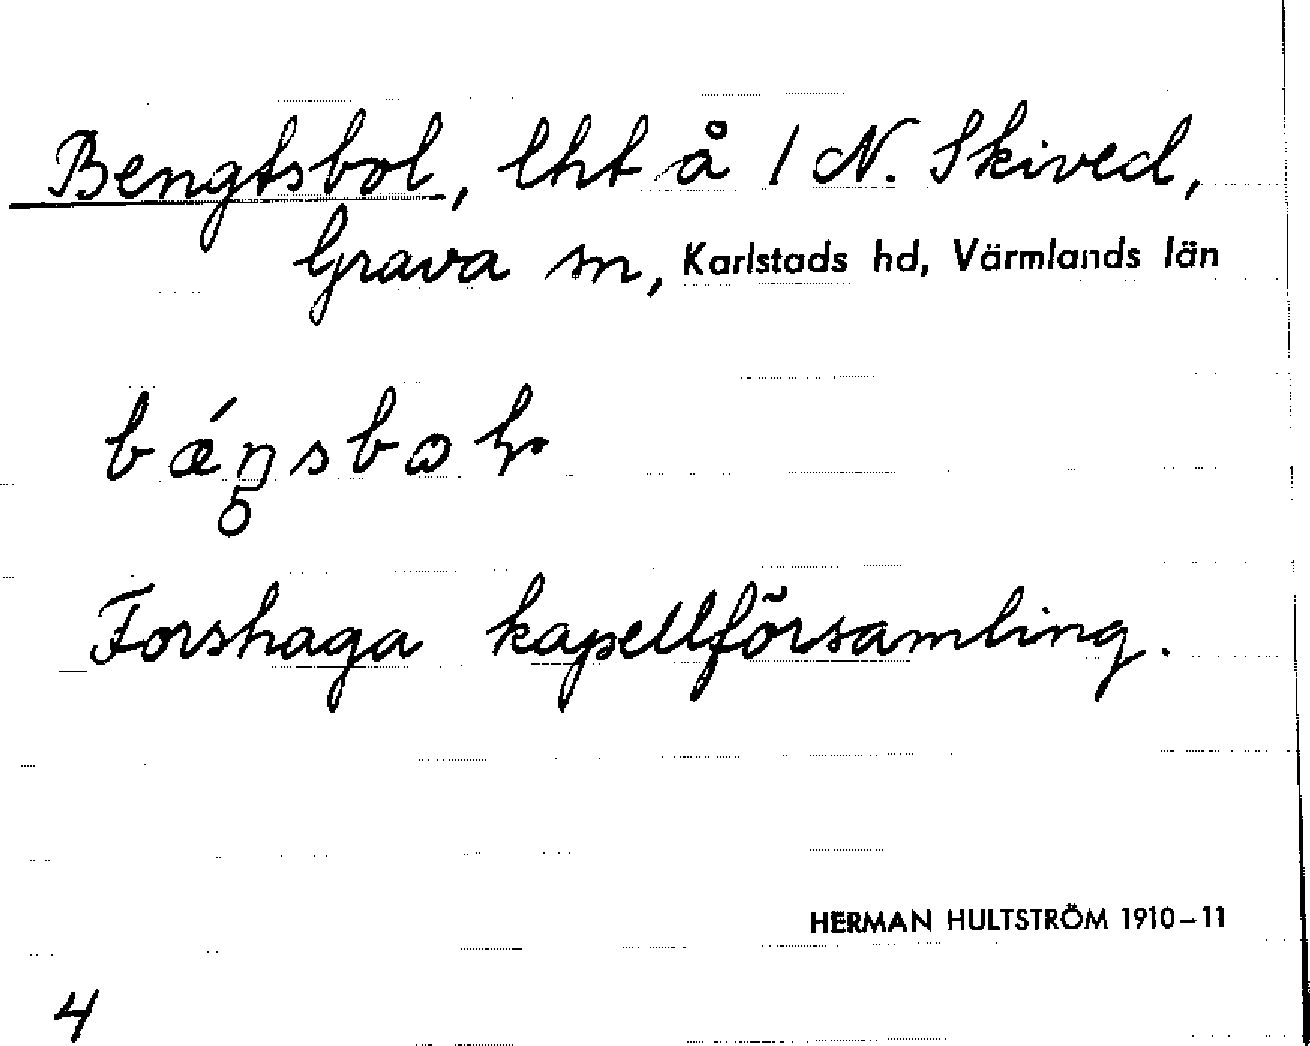 Bengtsbol, lht å 1 N. Skived,
Grava sn, Karlstads hd, Värmlands län
Forshaga kapellförsamling.
HERMAN HULTSTRÖM 1910-11
4